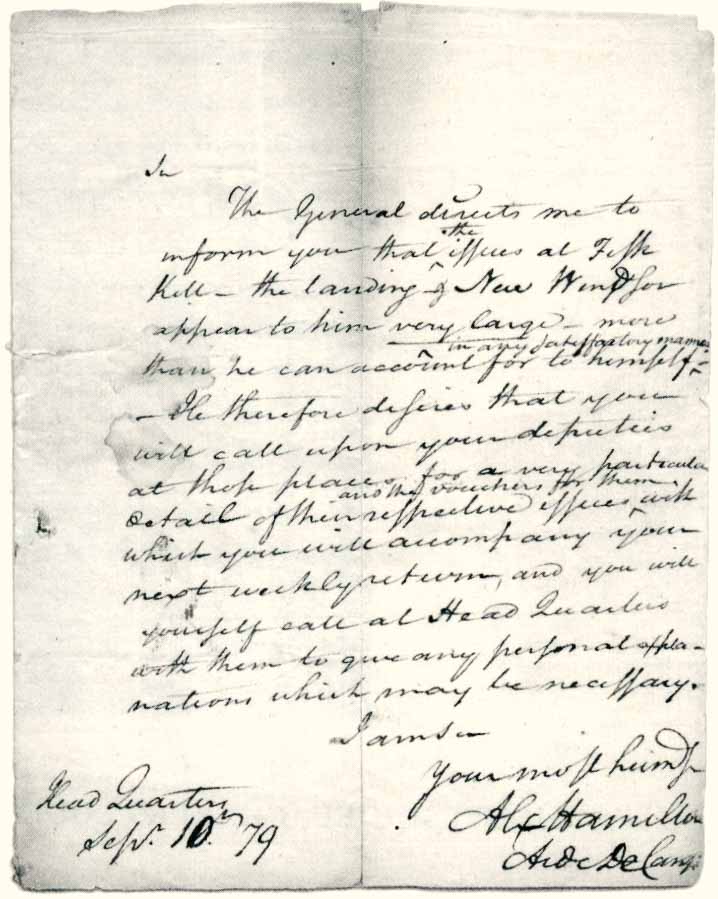 Sir
The General directs me to
the
inform you that ^ issues at Fish
Kill – the landing – & New Windsor
appear to him very large – more
in any satisfactory manner
than he can account for to himself ^ –
– He therefore desires that you
will call upon your deputies
at those places for a very particular
and the vouchers for them
detail of their respective issues ^ with
which you will accompany your
next weekly return, and you will
yourself call at Head Quarters
with them to give any personal expla-
nations which may be necessary.
I am Sir
Your most hum
Alx Hamilton
Aid De Camp
Head Quarters
Sepr. 10th 79